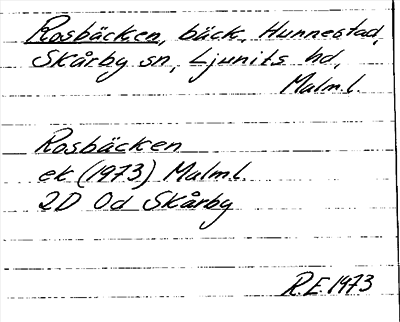 Rosbäcken, bäck, Hunnestad,
Skårby sn, Ljunits hd,
Malm.l.
Rosbäcken
ek (1973) Malm.l.
2D Od Skårby
R.E. 1973